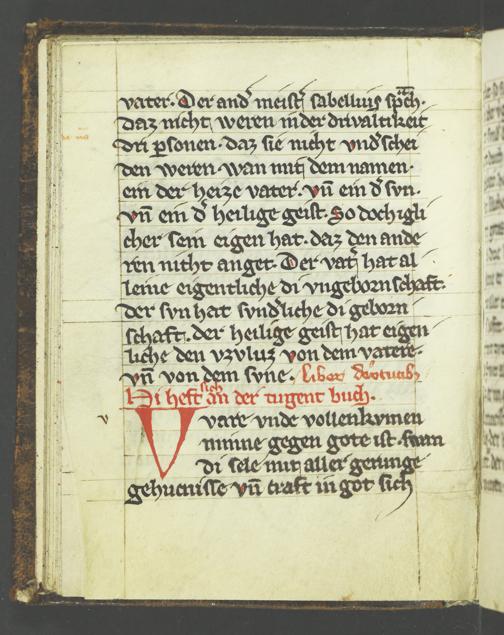 vater. Der and̉ meist̉ sabellius sp̄ch.
daz nicht weren in der drivaltikeit
dri ꝑsonen. daz sie nicht vnd̉schei
den weren. wan mit dem namen.
ein der heize vater. vn̄ ein d̉ svn.
vn̄ ein d̉ heilige geist. So doch igli
cher sein eigen hat. daz den ande
ren nicht anget. Der vat̉ hat al
leine eigentliche di vngebornschaft.
der svn hat svnd̉liche di geborn
schaft. der heilige geist hat eigen
liche den vzvluz von dem vatere.
vn̄ von dem svne. Liber
Hi heft sich an der tugent buch.
Vvare vnde vollenkvmen
minne gegen gote ist. swan
di sele mit aller gerunge
gehucnisse vn̄ craft in got sich